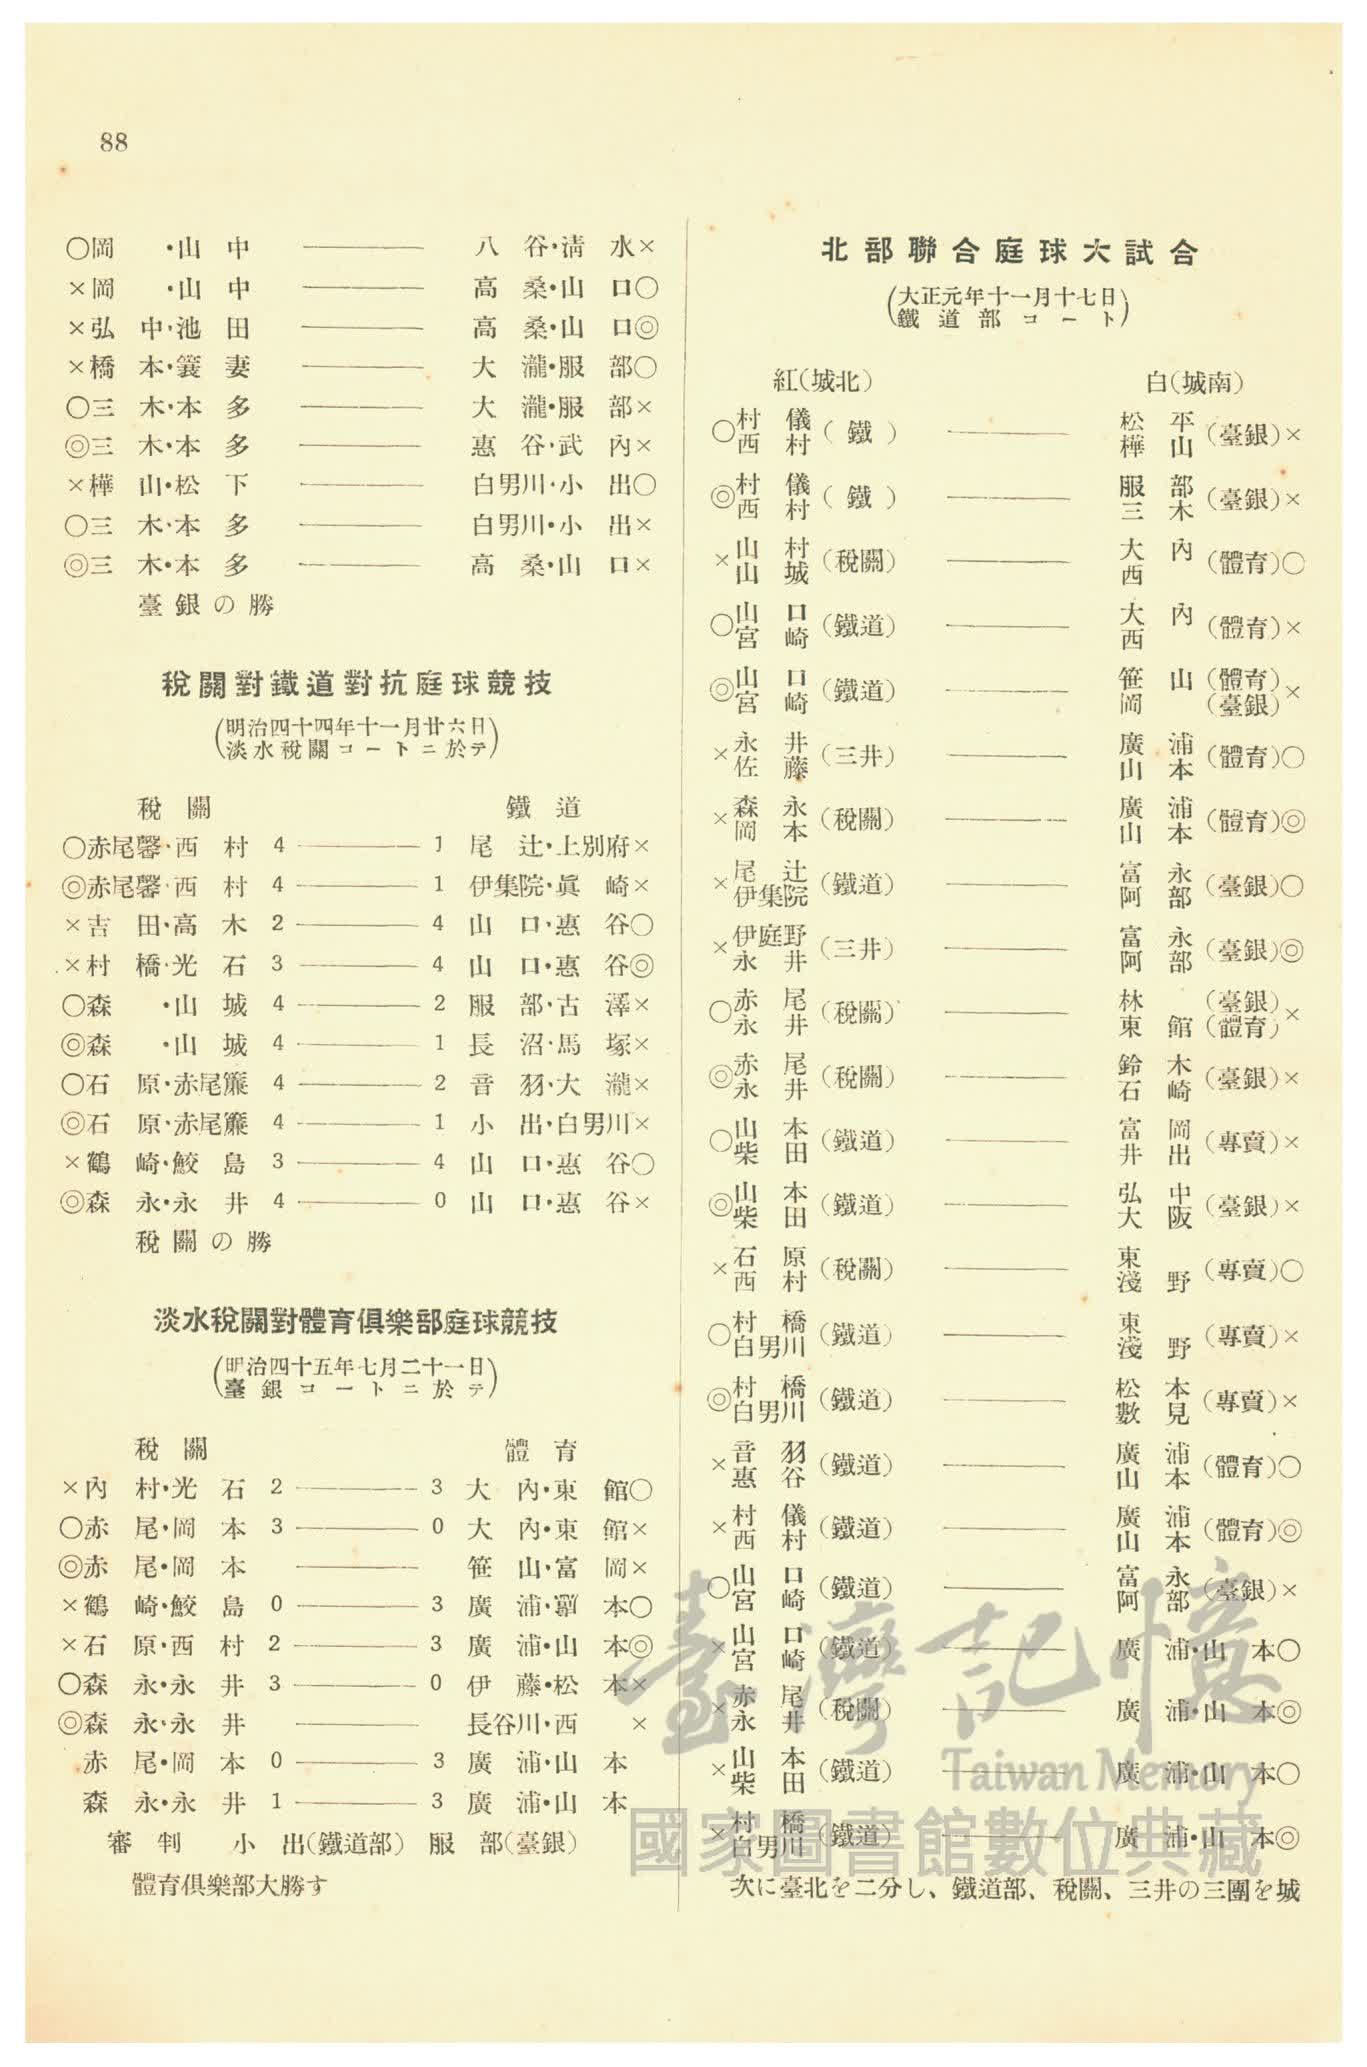 88
○岡 ・山 中 ――― 八 谷・淸 水×
×岡 ・山 中 ――― 高 桑・山 口○
×弘 中・池 田 ――― 高 桑・山 口◎
×橋 本・簑 妻 ――― 大 瀧・服 部○
○三 木・本 多 ――― 大 瀧・服 部×
◎三 木・本 多 ――― 惠 谷・武 內×
×樺 山・松 下 ――― 白男川・小 出○
○三 木・本 多 ――― 白男川・小 出×
◎三 木・本 多 ――― 高 桑・山 口×
臺銀の勝
稅關對鐵道對抗庭球競技
(明治四十四年十一月廿六日
淡水稅關コートニ於テ)
稅 關 鐵 道
○赤尾馨・西 村 4 ――― 1 尾 辻・上別府×
◎赤尾馨・西 村 4 ――― 1 伊集院・眞 崎×
×吉 田・高 木 2 ――― 4 山 口・惠 谷○
×村 橋・光 石 3 ――― 4 山 口・惠 谷◎
○森 ・山 城 4 ――― 2 服 部・古 澤×
◎森 ・山 城 4 ――― 1 長 沼・馬 塚×
○石 原・赤尾簾 4 ――― 2 音 羽・大 瀧×
◎石 原・赤尾簾 4 ――― 1 小 出・白男川×
×鶴 崎・鮫 島 3 ――― 4 山 口・惠 谷○
◎森 永・永 井 4 ――― 0 山 口・惠 谷×
稅關の勝
淡水稅關對體育俱樂部庭球競技
(明治四十五年七月二十一日
臺銀コートニ於テ)
稅 關 體 育
×內 村・光 石 2 ――― 3 大 內・東 館○
○赤 尾・岡 本 3 ――― 0 大 內・東 館×
◎赤 尾・岡 本 ――― 笹 山・富 岡×
×鶴 崎・鮫 島 0 ――― 3 廣 浦・ 本○
×石 原・西 村 2 ――― 3 廣 浦・山 本◎
○森 永・永 井 3 ――― 0 伊 藤・松 本×
◎森 永・永 井 ――― 長谷川・西 ×
赤 尾・岡 本 0 ――― 3 廣 浦・山 本
森 永・永 井 1 ――― 3 廣 浦・山 本
審 判 小 出(鐵道部) 服 部(臺銀)
體育俱樂部大勝す
北部聯合庭球大試合
(大正元年十一月十七日
鐵道部コート)
紅(城北) 白(城南)
○村 儀 西 村(鐵) ――― 松 平 樺 山(臺銀)×
◎村 儀 西 村(鐵) ――― 服 部 三 木(臺銀)×
×山 村 山 城(稅關) ――― 大 內 西(體育)○
○山 口 宮 崎(鐵道) ――― 大 內 西(體育)×
◎山 口 宮 崎(鐵道) ――― 笹 山(體育) 岡(臺銀)×
×永 井 佐 藤(三井) ――― 廣 浦 山 本(體育)○
×森 永 岡 本(稅關) ――― 廣 浦 山 本(體育)◎
×尾 辻 伊集院(鐵道) ――― 富 永 阿 部(臺銀)○
×伊庭野 永 井(三井) ――― 富 永 阿 部(臺銀)◎
○赤 尾 永 井(稅關) ――― 林(臺銀) 東 館(體育)×
◎赤 尾 永 井(稅關) ――― 鈴 木 石 崎(臺銀)×
○山 本 柴 田(鐵道) ――― 富 岡 井 出(專賣)×
◎山 本 柴 田(鐵道) ――― 弘 中 大 阪(臺銀)×
×石 原 西 村(稅關) ――― 東 淺 野(專賣)○
○村 橋 白男川(鐵道) ――― 東 淺 野(專賣)×
◎村 橋 白男川(鐵道) ――― 松 本 數 見(專賣)×
×音 羽 惠 谷(鐵道) ――― 廣 浦 山 本(體育)○
×村 儀 西 村(鐵道) ――― 廣 浦 山 本(體育)◎
○山 口 宮 崎(鐵道) ――― 富 永 阿 部(臺銀)×
×山 口 宮 崎(鐵道) ――― 廣 浦・山 本○
×赤 尾 永 井(稅關) ――― 廣 浦・山 本◎
×山 本 柴 田(鐵道) ――― 廣 浦・山 本○
×村 橋 白男川(鐵道) ――― 廣 浦・山 本◎
次に臺北を二分し、鐵道部、稅關、三井の三團を城
臺灣記憶
Taiwan Memory
國家圖書館數位典藏